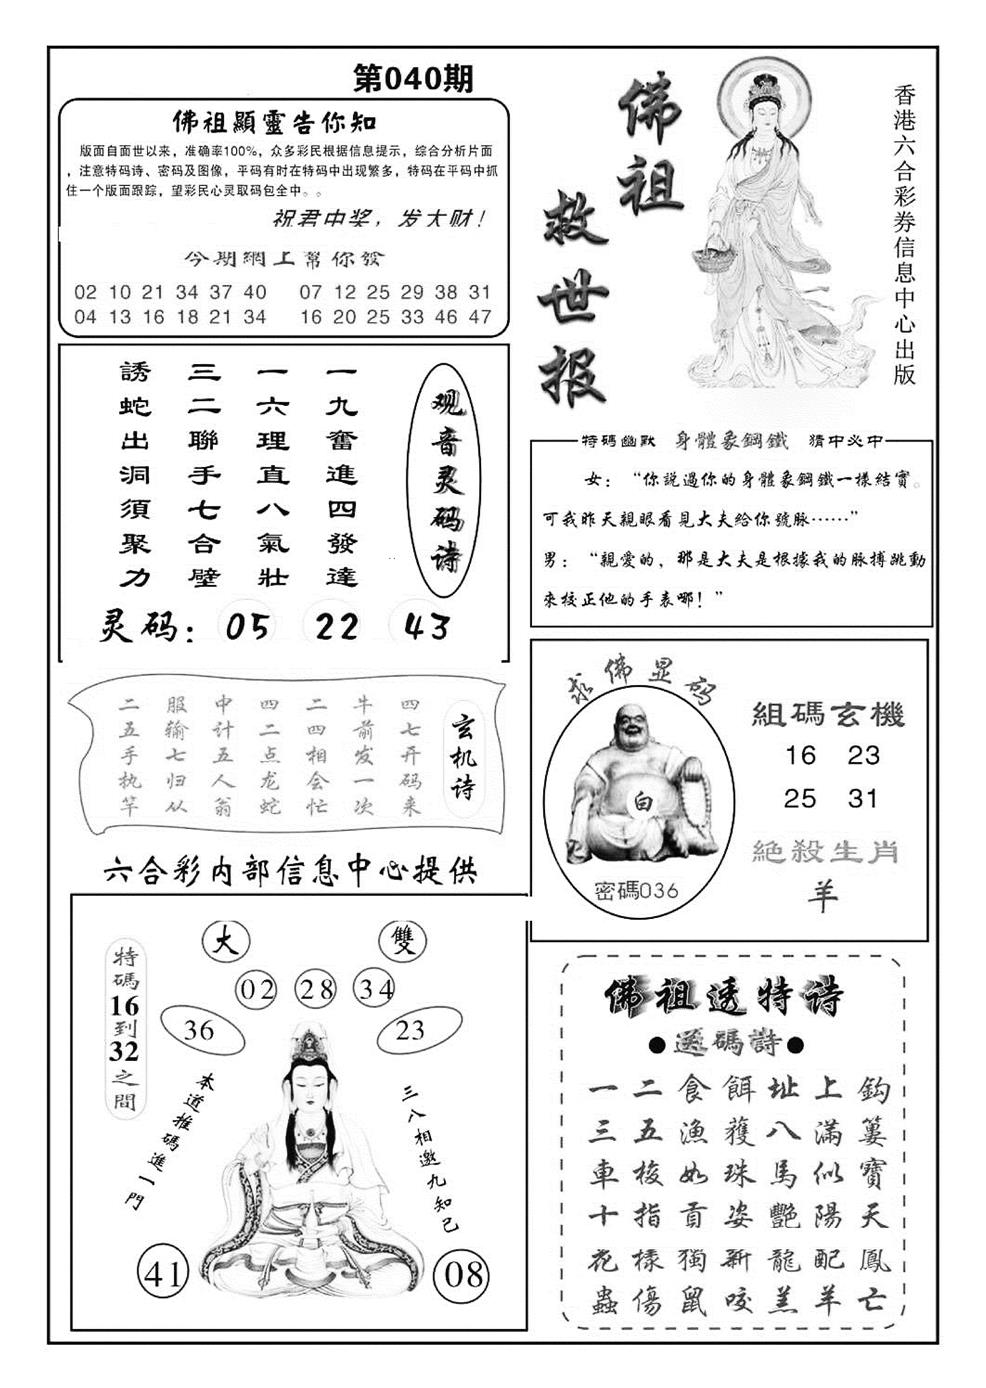 第040期
佛祖顯靈告你知
版面自面世以来，准确率100%，众多彩民根据信息提示，综合分析片面
，注意特码诗、密码及图像，平码有时在特码中出现繁多，特码在平码中抓
住一个版面跟踪，望彩民心灵取码包全中。。
祝君中奖，发大财！
今期網上幫你發
02 10 21 34 37 40 07 12 25 29 38 31
04 13 16 18 21 34 16 20 25 33 46 47
佛祖
救世报
香港六合彩券信息中心出版
观音灵码诗
一九奮進四發達
一六理直八氣壯
三二聯手七合壁
誘蛇出洞須聚力
灵码：05 22 43
特碼幽默 身體象鋼鐵 猜中必中
女：“你説過你的身體象鋼鐵一樣結實。
可我昨天親眼看見大夫給你號脉……”
男：“親愛的，那是大夫是根據我的脉搏跳動
來校正他的手表哪！”
玄机诗
四七开码来
牛前发一次
二四相会忙
四二点龙蛇
中计五人翁
服输七归从
二五手执竿
求佛显码
白
密碼036
組碼玄機
16 23
25 31
絕殺生肖
羊
六合彩内部信息中心提供
特碼16到32之間
大
雙
02 28 34
36
23
本道推碼進一門
三八相邀九知己
41
08
佛祖透特诗
●透碼詩●
一二食餌址上鈎
三五漁獲八滿簍
車梭如珠馬似寶
十指貢姿艷陽天
花樣獨新龍配鳳
蟲傷鼠咬羔羊亡